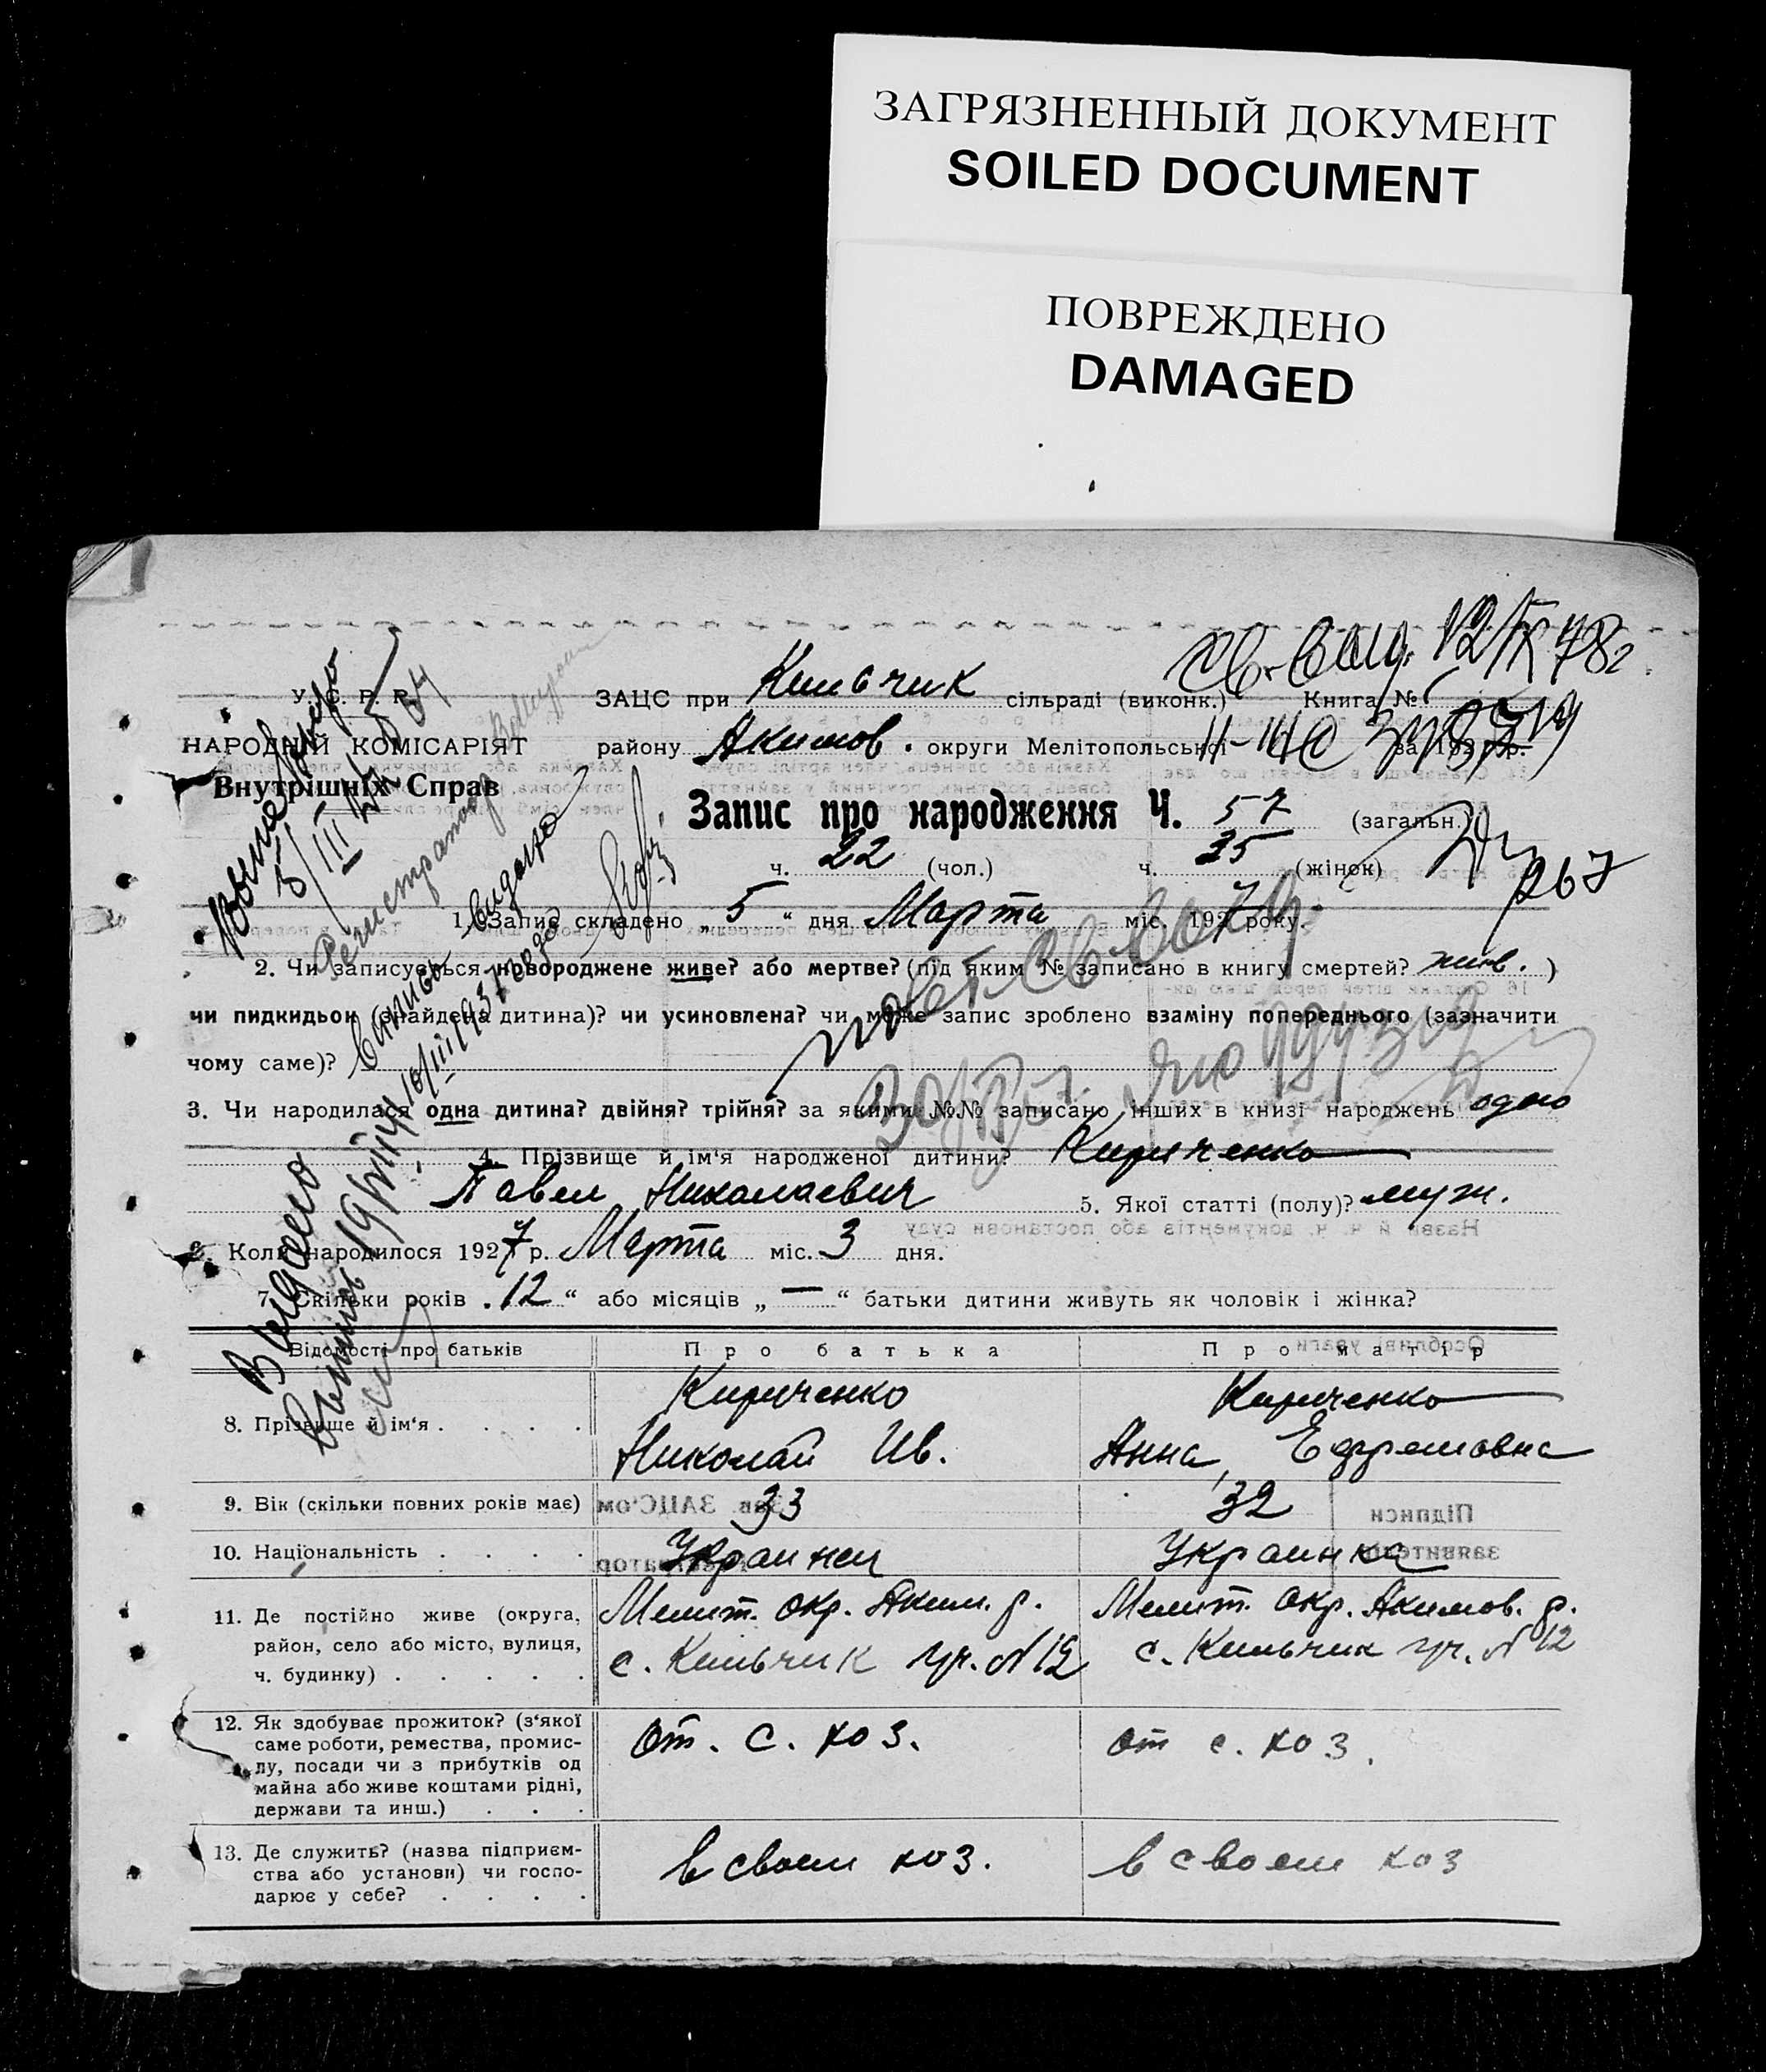 ЗАГРЯЗНЕННЫЙ ДОКУМЕНТ
SOILED DOCUMENT
ПОВРЕЖДЕНО
DAMAGED
У. С. Р. Р.
НАРОДНИЙ КОМІСАРІЯТ
Внутрішніх Справ
ЗАЦС при Кильчик сільраді (виконк.) Книга №
району Акимов. округи Мелітопольської за 192 р.
Запис про народження Ч. 57 (загальн.)
ч. 22 (чол.) ч. 35 (жінок)
1. Запис складено „ 5 “ дня Марта міс. 1927 року.
2. Чи записується новороджене живе? або мертве? (під яким № записано в книгу смертей? жив. )
чи пидкидьок (знайдена дитина)? чи усиновлена? чи може запис зроблено взаміну попереднього (зазначити
чому саме)?
3. Чи народилася одна дитина? двійня? трійня? за якими №№ записано інших в книзі народжень одно
4. Прізвище й ім'я народженої дитини? Кириченко
Павел Николаевич 5. Якої статті (полу)? муж.
6. Коли народилося 1927 р. Марта міс. 3 дня.
7. Скільки років „ 12 “ або місяців „ — “ батьки дитини живуть як чоловік і жінка?
Відомості про батьків Про батька Про матір
8. Прізвище й ім'я . . . . Кириченко Николай Ив. Кириченко Анна Ефремовна
9. Вік (скільки повних років має) 33 32
10. Національність . . . . Украинец Украинка
11. Де постійно живе (округа,
район, село або місто, вулиця,
ч. будинку) . . . . .
Мелит. окр. Аким. р.
с. Кильчик уч. №12
Мелит. окр. Акимов. р.
с. Кильчик уч. №12
12. Як здобуває прожиток? (з'якої
саме роботи, ремества, промис-
лу, посади чи з прибутків од
майна або живе коштами рідні,
держави та инш.) . . .
от. с. хоз.
от с. хоз.
13. Де служить? (назва підприєм-
ства або установи) чи госпо-
дарює у себе? . . . .
в своем хоз.
в своем хоз